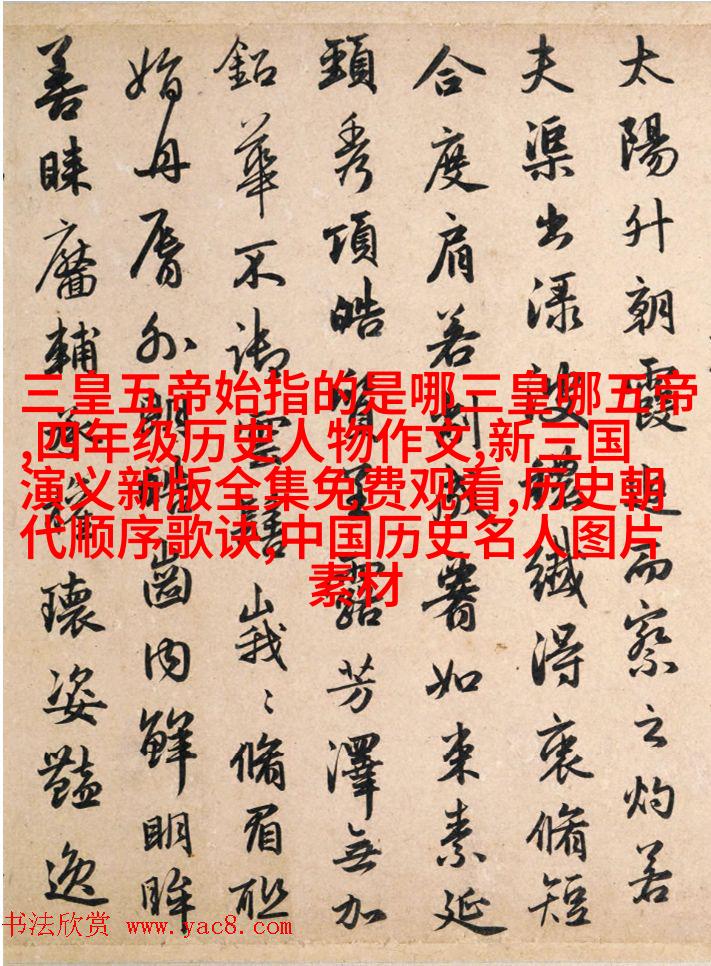 太陽升朝霞迫而察之灼若
夫渠出渌波穠纖得衷脩短
合度肩若削成署如束素延
頸秀項皓質呈露芳澤無加
鉛華不御雲髻峩〻脩眉聯
娟丹脣外朗皓齒内鮮明眸
善睞靨輔承權瓌姿豔逸
三皇五帝始指的是哪三皇哪五帝
,四年级历史人物作文,新三国
演义新版全集免费观看,历史朝
代顺序歌诀,中国历史名人图片
素材
书法欣赏 www.yac8.com